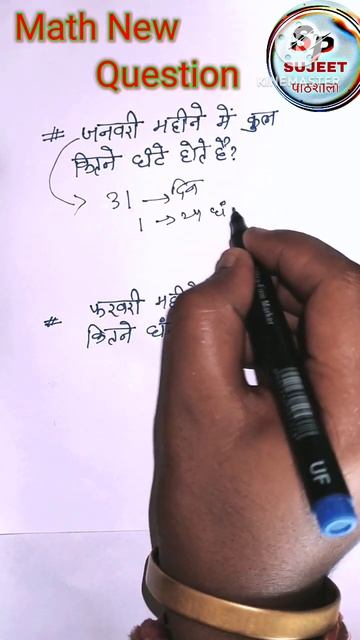 Math New
Question
SP
SUJEET
पाठशाला
KINEMASTER
# जनवरी महीने में कुल
कितने घंटे होते है?
31 → दिन
1 → 24 घं
# फरवरी
कितने
Marker
UF